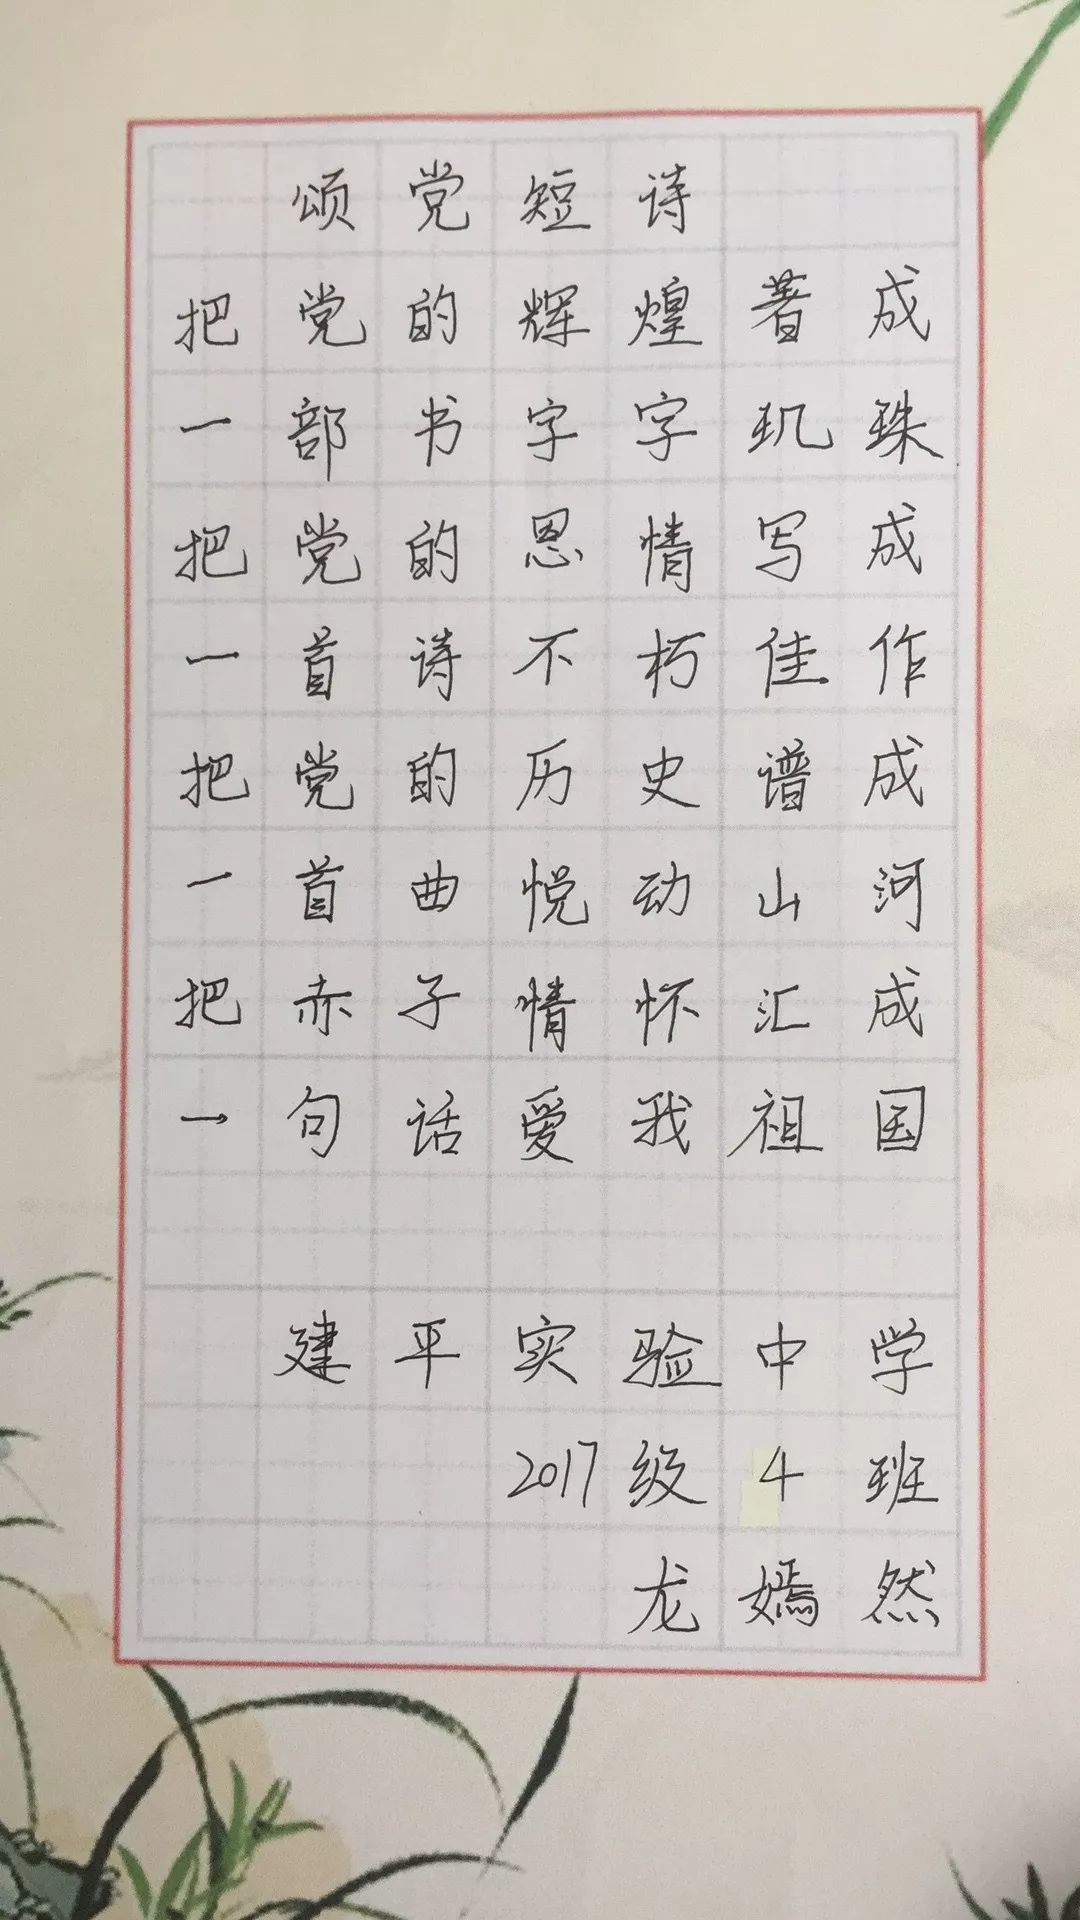 颂党短诗
把党的辉煌著成
一部书字字玑珠
把党的恩情写成
一首诗不朽佳作
把党的历史谱成
一首曲悦动山河
把赤子情怀汇成
一句话爱我祖国
建平实验中学
2017级4班
龙嫣然